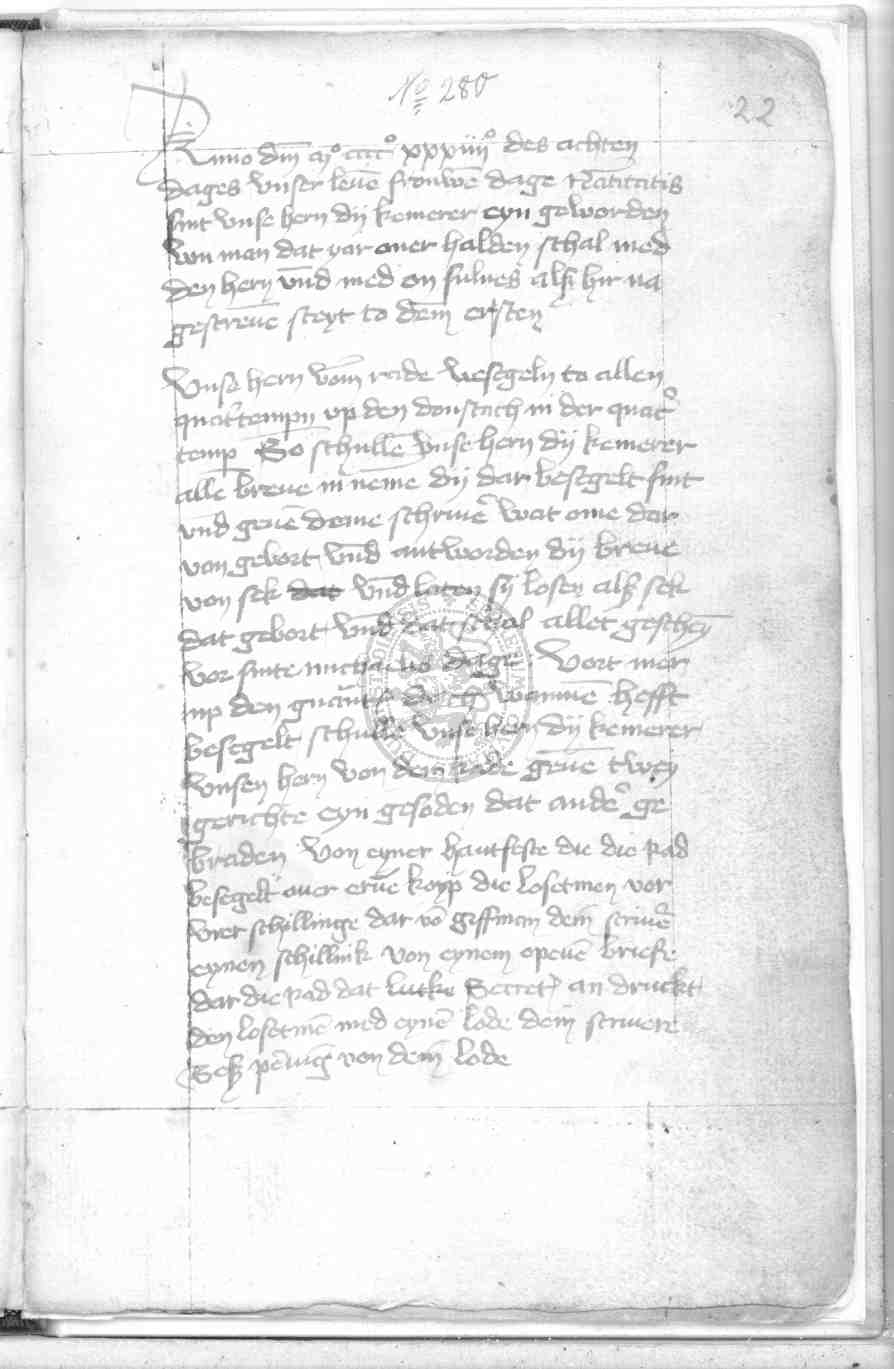 No 280
22
Anno dm̄ mº ccccº xxxiiiiº des achten
dages vnser leuē frouwē dage Natiuitatis
sint vnse hern dij kemerer eyn geworden
wu man dat yar ouer halden schal med
den hern vn̄d med on sulues alß hir na
gescreuē steyt to dem ersten
Vnse hern vom rade besegeln to allen
quat'tempn̄ vp den donstach in der quat'
temp̄ So schullē vnse hern dij kemerer
alle breue in neme dij dar besegelt sint
vn̄d geuē deme schriuer wat ome dar
von gebort vn̄d antworden dij breue
von sek dat vn̄d laten sij losen alß sek
dat gebort vn̄d dat schal allet geschen
vor sinte michaelis dage Vort mer
up den wannē hefft
besegelt schullē vnse hern dij kemerer
vnsen hern von dem Rade geuē twey
gerichte eyn gesoden dat ander ge
braden Von eyner hantfeste die die Rad
besegelt ouer erue koyp die losetmen vor
virer schillinge dar vō geffman dem scriuer
eynen schillink von eynem openē briefe
dar die Rad dat lutke Secret an druckt
den losetmē med eynē lode dem scriuere
Seß pennīg von dem lode